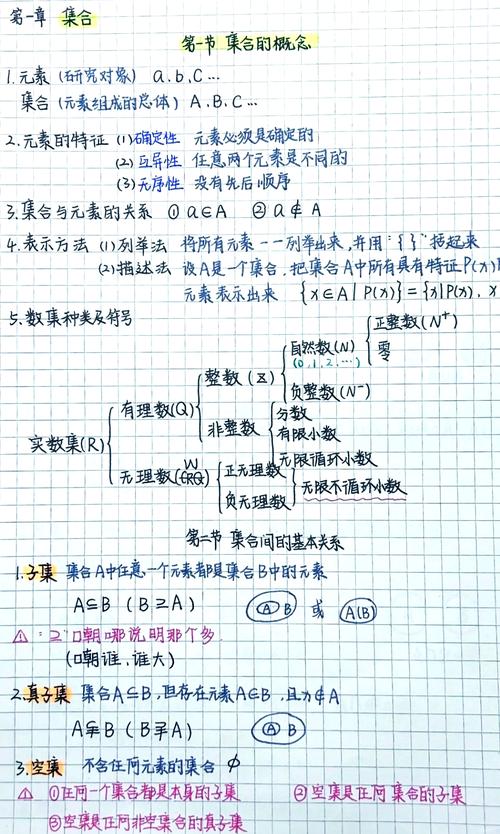 第一章 集合
第一节 集合的概念
1.元素 (研究对象) a.b.c…
集合 (元素组成的总体) A.B.C…
2.元素的特征 (1)确定性 元素必须是确定的
(2)互异性 任意两个元素是不同的
(3)无序性 没有先后顺序
3.集合与元素的关系 ①a∈A ②a∉A
4.表示方法 (1)列举法 将所有元素一一列举出来,并用"{ }"括起来
(2)描述法 设A是一个集合,把集合A中所有具有特征P(x)
元素表示出来 {x∈A|P(x)}={x|P(x), x
5.数集种类及符号
正整数(N⁺)
自然数(N)
(0,1,2,…)
零
整数(Z)
负整数(N⁻)
有理数(Q)
分数
非整数
有限小数
实数集(R)
无限循环小数
无理数
正无理数
无限不循环小数
负无理数
第二节 集合间的基本关系
1.子集 集合A中任意一个元素都是集合B中的元素
A⊆B (B⊇A) A B 或 A(B)
⚠:"⊇"口朝哪说明那个多.
(口朝谁,谁大)
2.真子集 集合A⊆B,但存在元素A∈B,且x∉A
A⫋B (B⫌A) A B
3.空集 不含任何元素的集合 ϕ
⚠ ①任何一个集合都是本身的子集 ②空集是任何集合的子集
③空集是任何非空集合的真子集